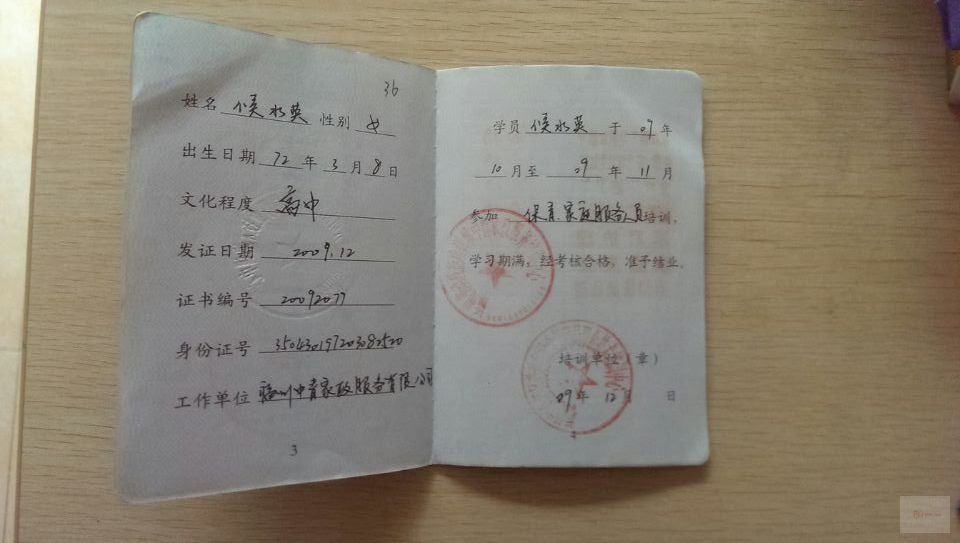 36
姓名 候水英 性别 女
出生日期 72 年 3 月 8 日
文化程度 高中
发证日期 2009.12
证书编号 20092077
身份证号 350430197203082520
工作单位 福州中青家政服务有限公司
3
学员 候水英 于 09 年
10 月至 09 年 11 月
参加 保育家政服务员培训,
学习期满,经考核合格,准予结业。
培训单位(章)
09 年 12 月 日
4